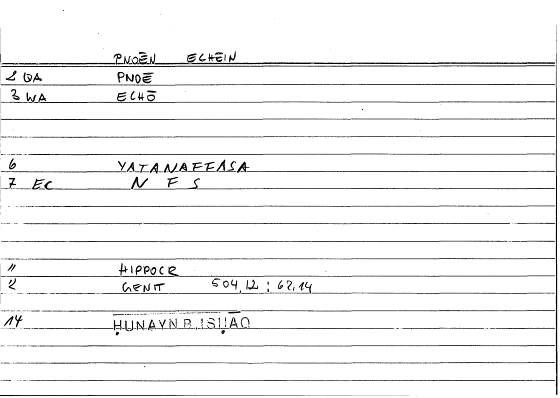 PNOĒN ECHEIN
2 QA PNOĒ
3 WA ECHŌ
6 YATANAFFASA
7 EC N F S
11 HIPPOCR
12 GENIT 504,12 : 62,14
14 ḤUNAYN B. ISḤĀQ